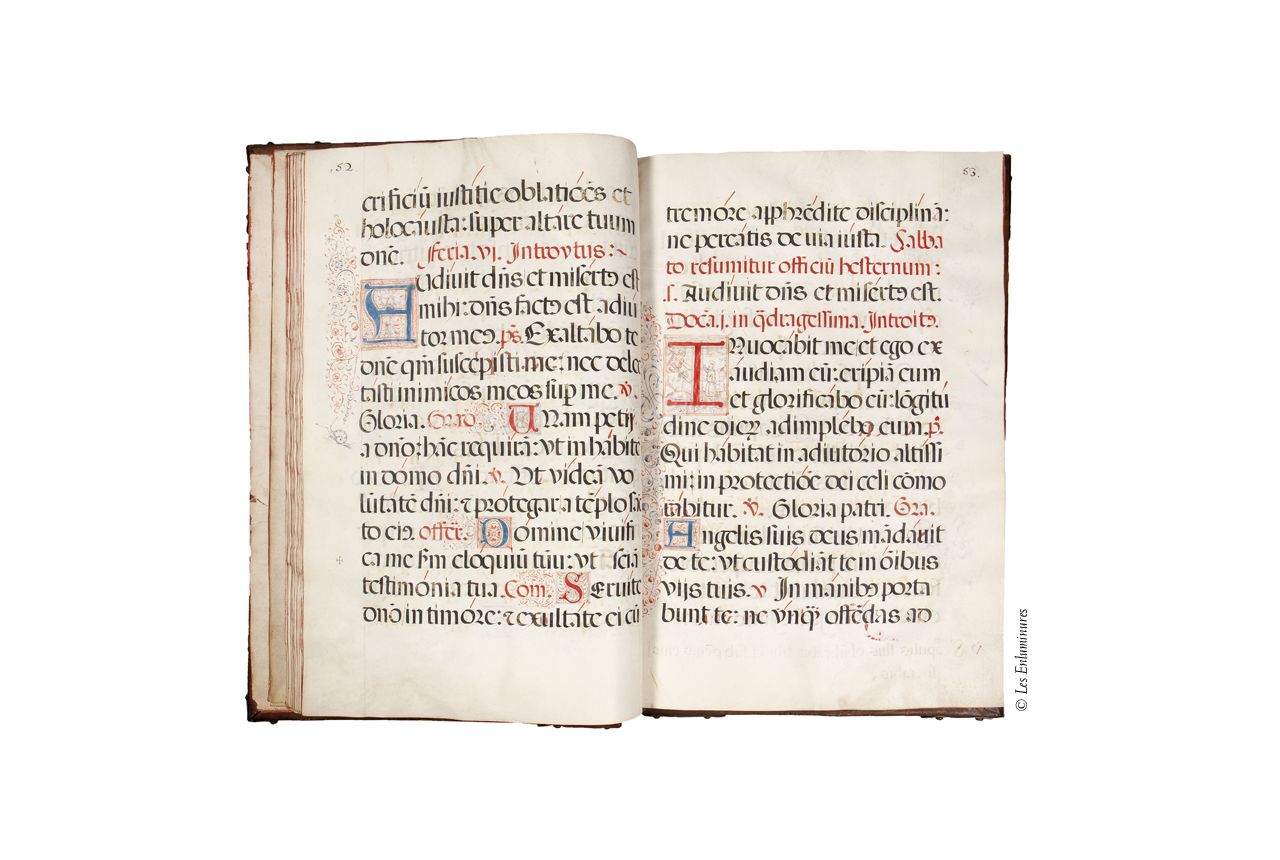 52.
crificiū iustitie oblatiōēs et
holocausta: super altare tuum
dn̄e. Feria. vj. Introytus:
Audiuit dn̄s et misertꝰ est
mihi: dn̄s factꝰ est adiu
tor meꝰ. ps̄. Exaltabo te
dn̄e qm̄ suscepisti me: nec dele
tasti inimicos meos sup me. v̄.
Gloria. Grad. Unam petij
a dn̄o: hāc requirā: vt inhabitē
in domo dn̄i. v̄. Ut videā vo
lūtatē dn̄i: ⁊ protegar a tēplo sā
to eiꝰ. offer̄. Domine viuifi
ca me sm̄ eloquiū tuū: vt sciā
testimonia tua. Com. Seruite
dn̄o in timore: ⁊ exultate ei cū
53.
tremore apphrēdite disciplinā:
ne pereatis de uia iusta. Salba
to resumitur officiū hesternum:
s. Audiuit dn̄s et misertꝰ est.
Docā. j. in q̄dragessima. Introitꝰ.
INuocabit me et ego ex
audiam eū: eripiā eum
et glorificabo eū: lōgitu
dine dieꝝ adimplebo eum. p̄.
Qui habitat in adiutorio altissi
mi: in protectiōe dei celi cōmo
rabitur. v̄. Gloria patri. Gra.
Angelis suis deus mādauit
de te: vt custodiāt te in ōībus
vijs tuis. v In manibꝰ porta
bunt te: ne vnq̄ offēdas ad
© Les Enluminures